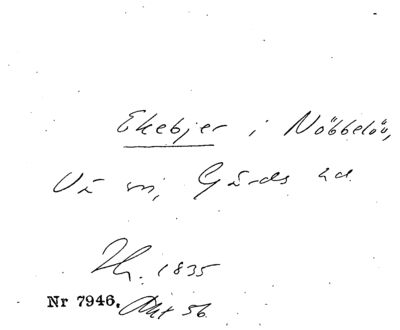 Ekebjer i Nöbbelöv,
Vä sn, Gärds hd.
1835
Nr 7946. Akt 56.